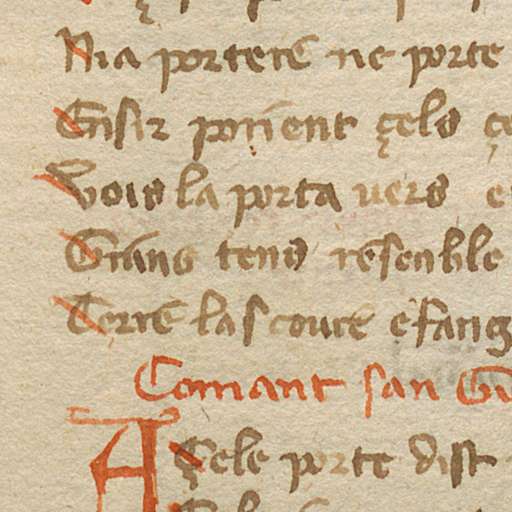 Nia porterẽ ne porte
Ensir porient çels
Vois la porta vers e
Grãns tens resenble
Terrẽ la scoure e fang
Comant san Gi
A Çele porte dist